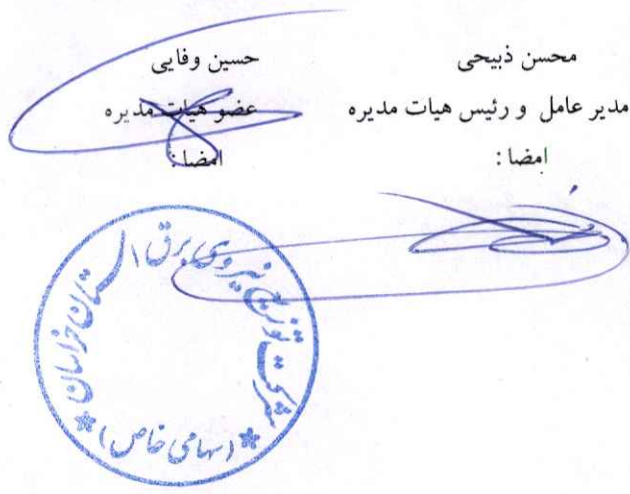 محسن ذبیحی
مدیر عامل و رئیس هیات مدیره
امضا :
حسین وفایی
عضو هیات مدیره
امضا :
شرکت توزیع نیروی برق استان خراسان
(سهامی خاص)